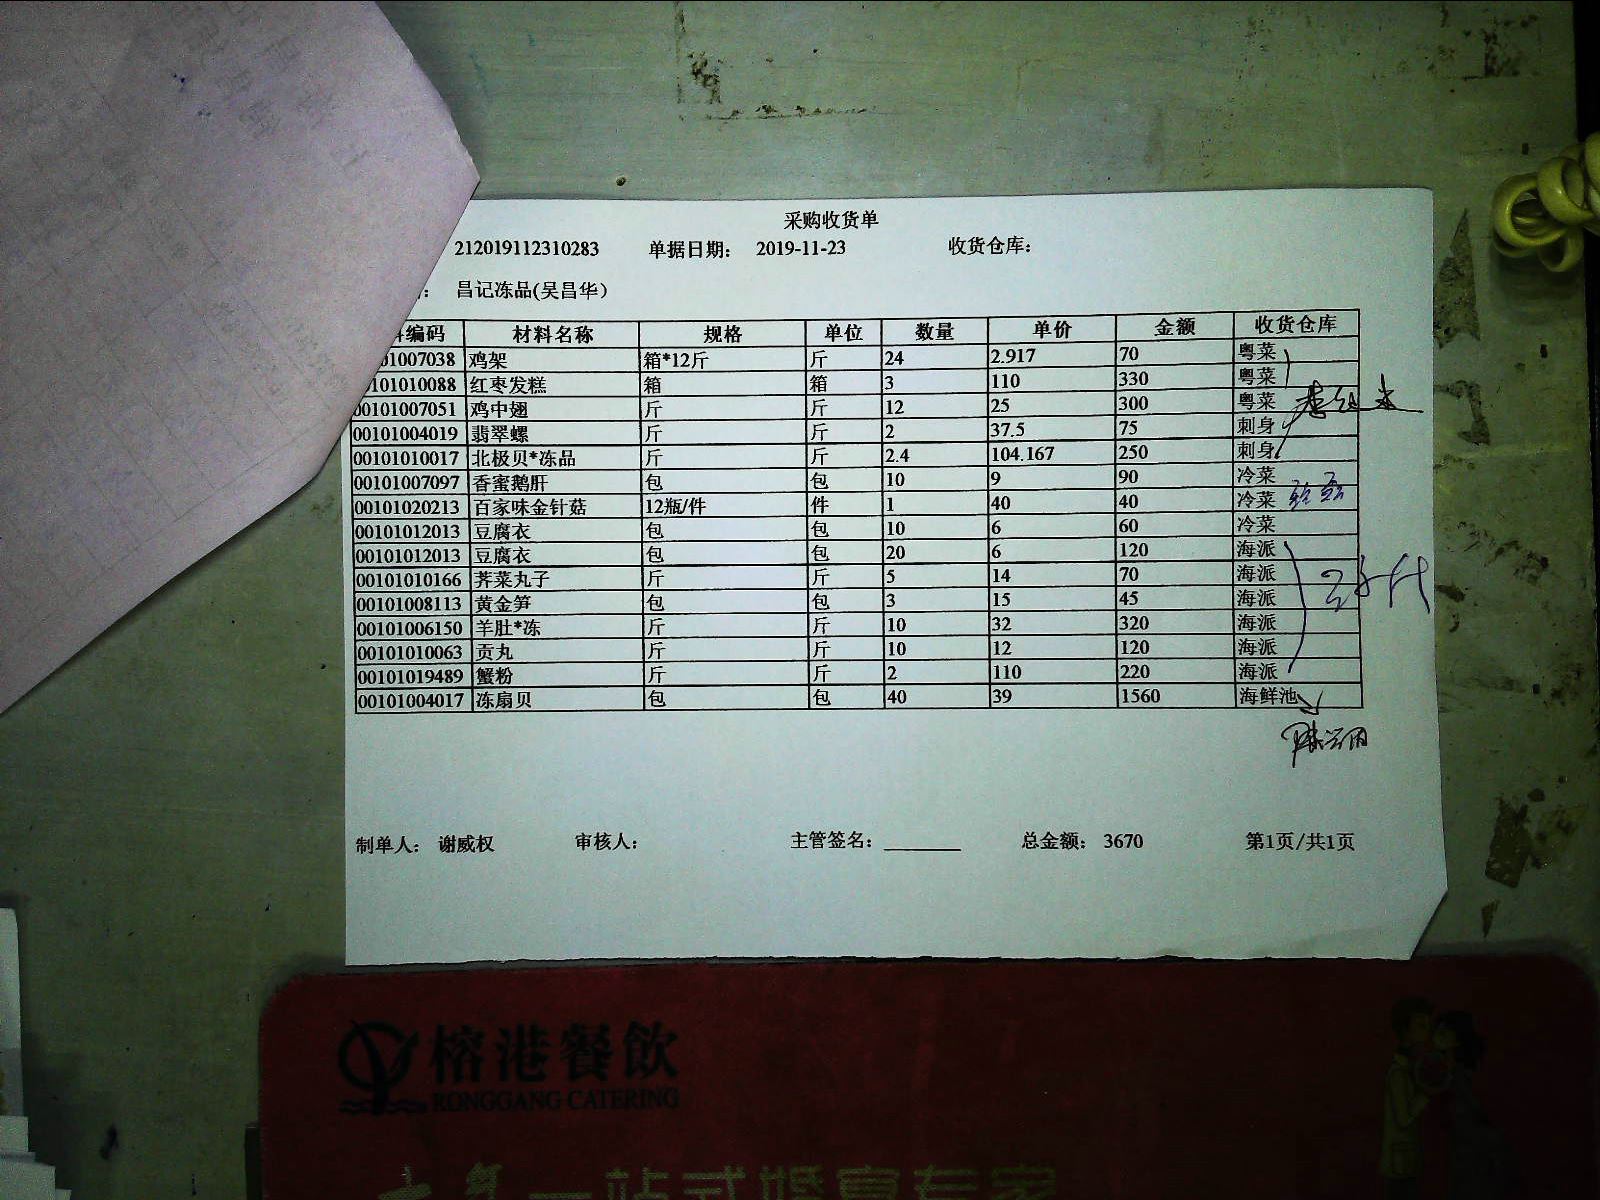 采购收货单
212019112310283 单据日期： 2019-11-23 收货仓库：
： 昌记冻品(吴昌华)
编码 材料名称 规格 单位 数量 单价 金额 收货仓库
01007038 鸡架 箱*12斤 斤 24 2.917 70 粤菜
101010088 红枣发糕 箱 箱 3 110 330 粤菜
00101007051 鸡中翅 斤 斤 12 25 300 粤菜
00101004019 翡翠螺 斤 斤 2 37.5 75 刺身
00101010017 北极贝*冻品 斤 斤 2.4 104.167 250 刺身
00101007097 香蜜鹅肝 包 包 10 9 90 冷菜
00101020213 百家味金针菇 12瓶/件 件 1 40 40 冷菜
00101012013 豆腐衣 包 包 10 6 60 冷菜
00101012013 豆腐衣 包 包 20 6 120 海派
00101010166 荠菜丸子 斤 斤 5 14 70 海派
00101008113 黄金笋 包 包 3 15 45 海派
00101006150 羊肚*冻 斤 斤 10 32 320 海派
00101010063 贡丸 斤 斤 10 12 120 海派
00101019489 蟹粉 斤 斤 2 110 220 海派
00101004017 冻扇贝 包 包 40 39 1560 海鲜池
制单人： 谢威权 审核人： 主管签名： 总金额： 3670 第1页/共1页
榕港餐飲
RONGGANG CATERING
一站式婚宴专家